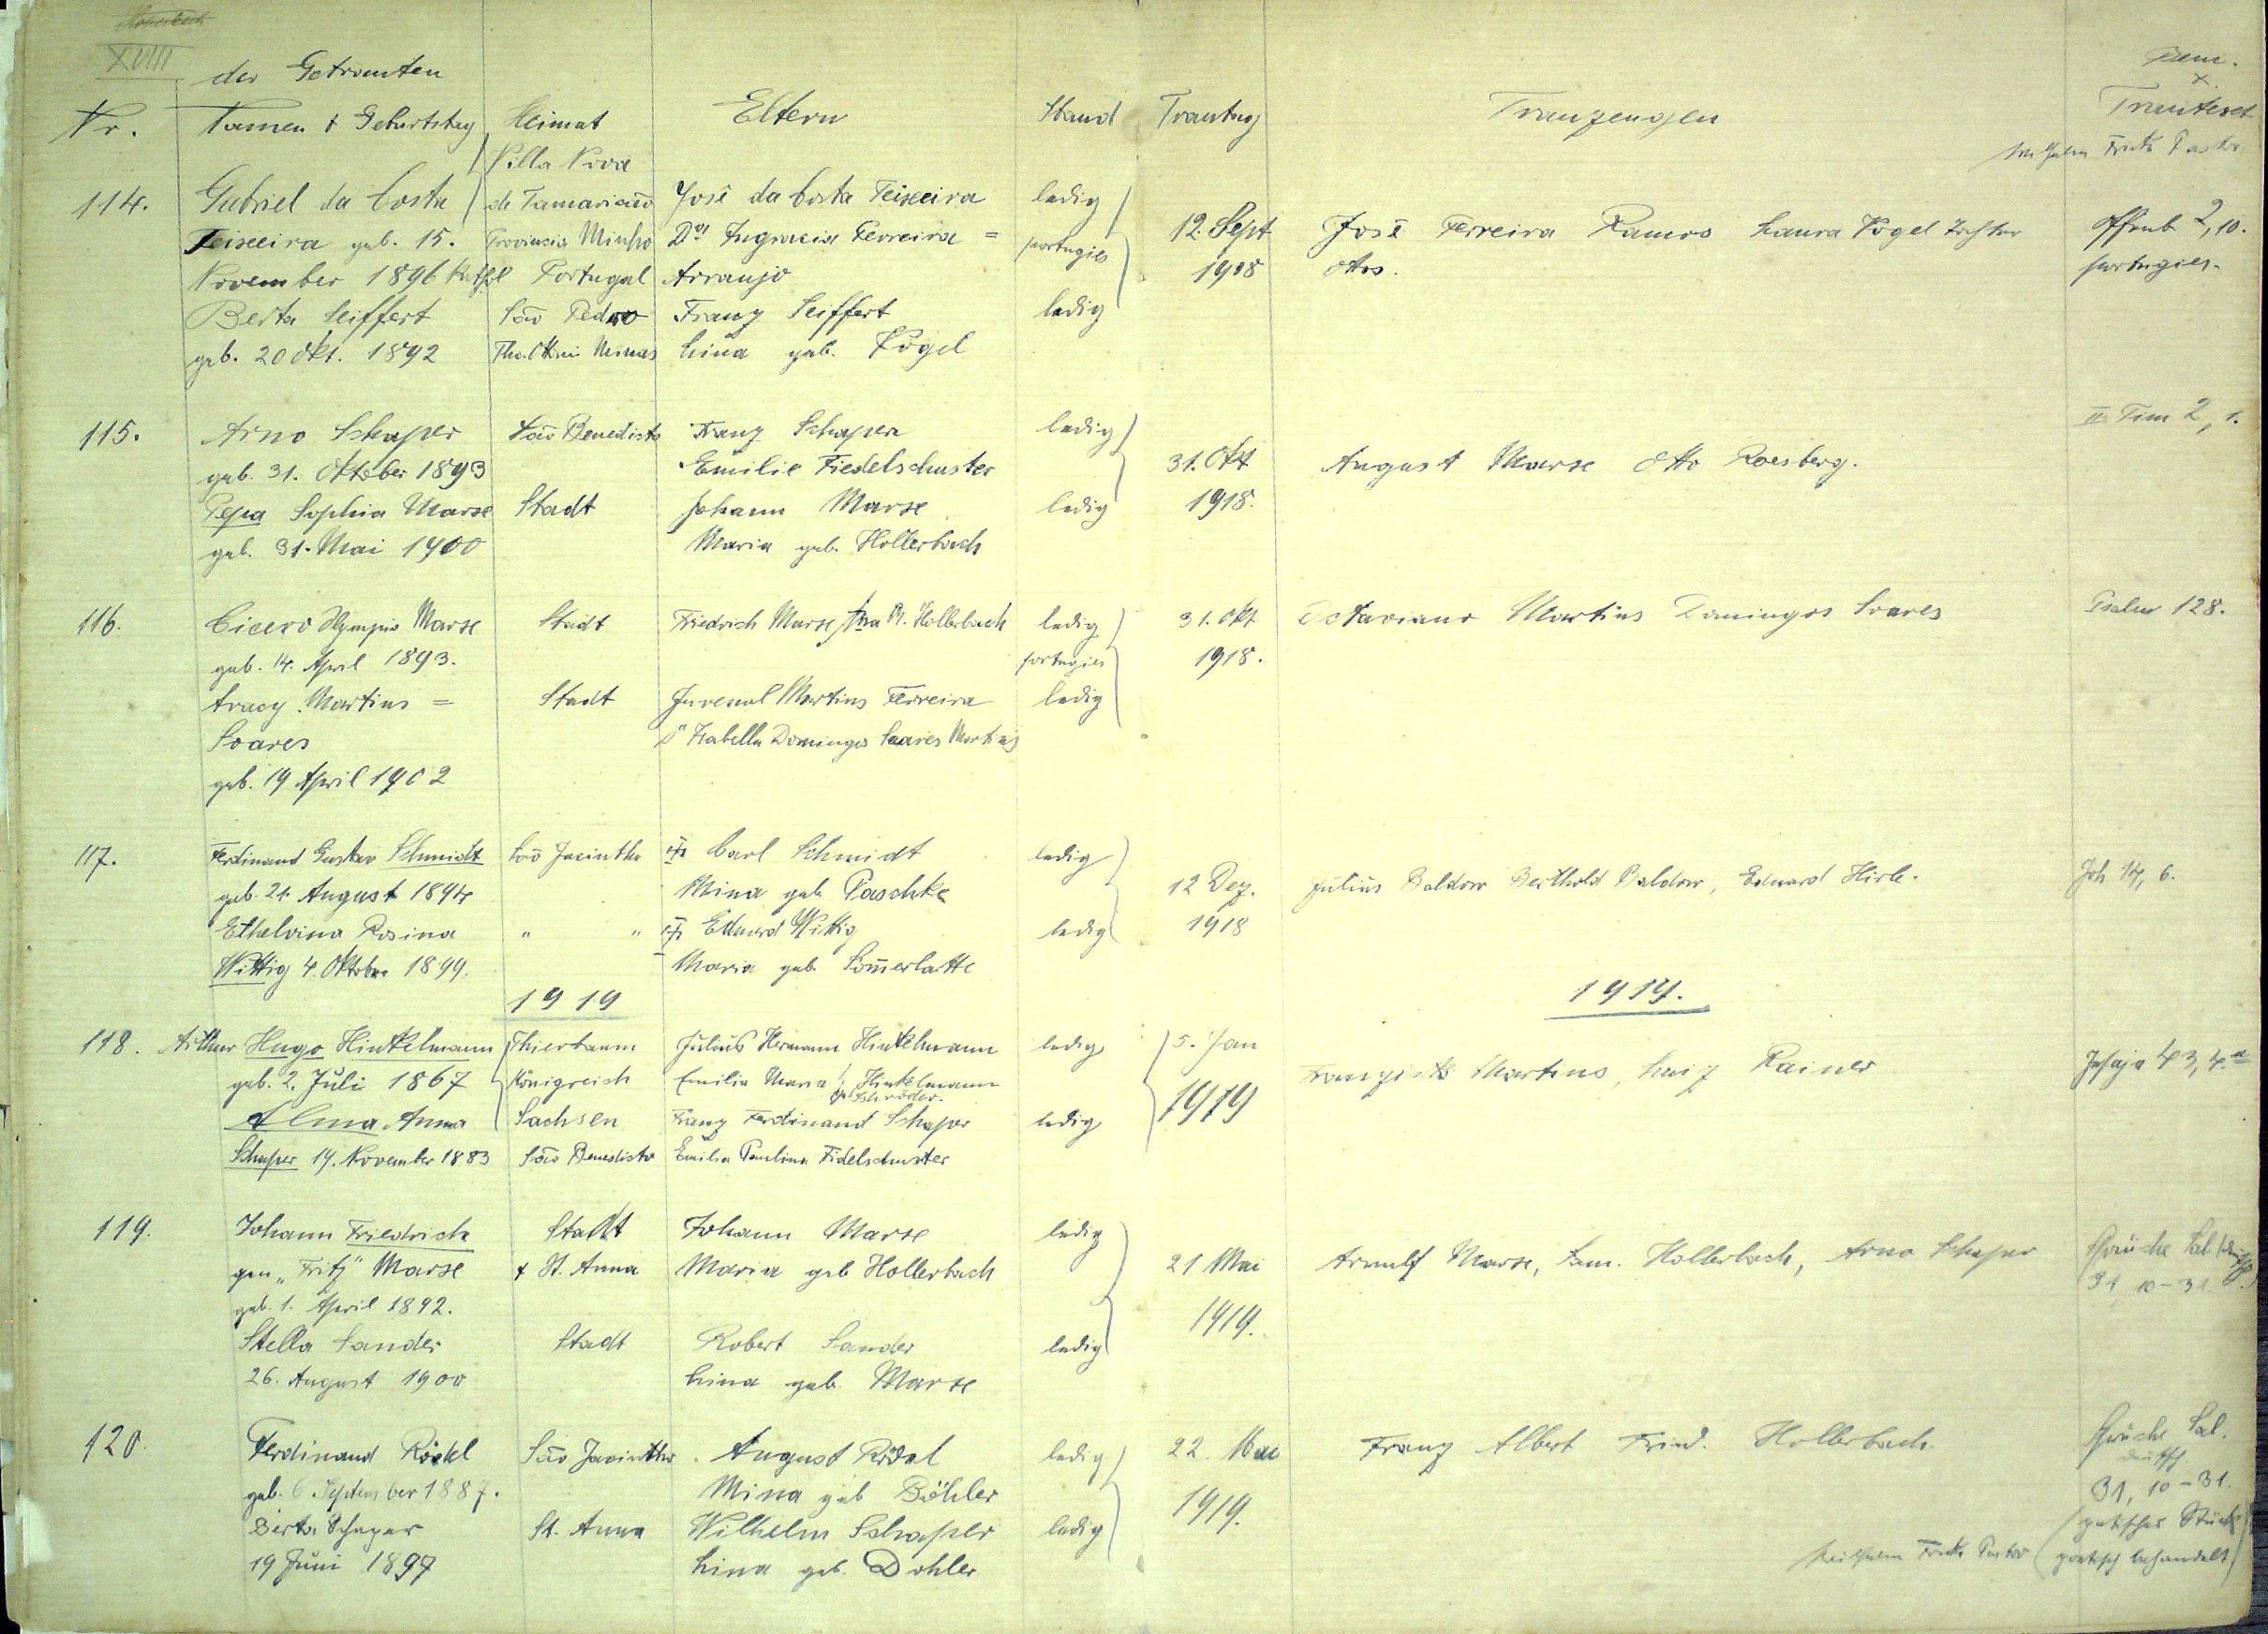 XVIII
der Getrauten
Nr. Namen & Geburtstag Heimat Eltern Stand Trautag Trauzeugen Trautext
Villa Nova
114. Gabriel da Costa José da Costa Teixeira ledig
Teixeira geb. 15. Provincia Minho Ferreira = portugies 12. Sept José Ferreira Ramos Laura Vogel Offenb 2, 10.
November 1896 Portugal Arraujo 1918 portugies.
Berta Seiffert São Pedro Franz Seiffert ledig
geb. 20 Okt. 1892 Lina geb. Vogel
115. Arno Schaper São Benedicto Franz Schaper ledig II Tim 2, 1.
geb. 31. Oktober 1893 Emilie Fiedelschuster 31. Okt August Marse Otto Roesberg.
Sophia Marse Stadt Johann Marse ledig 1918.
geb. 31. Mai 1900 Maria geb. Hollerbach
116. Cicero Olympio Marse Stadt Friedrich Marse Hollerbach ledig 31. Okt Octaviano Martins Domingos Soares Psalm 128.
geb. 14. April 1893. portugies 1918.
Aracy Martins = Stadt Juvenal Martins Ferreira ledig
Soares Isabella Domingos Soares Martins
geb. 19 April 1902
117. Ferdinand Gustav Schmidt São Jacintho Carl Schmidt ledig
geb. 21. August 1894 Mina geb. Paschke 12 Dez. Julius Baldow Berthold Baldow, Eduard Hirle. Joh 14, 6.
Ethelvina Rosina " " Eduard Wittig ledig 1918
Wittig 4. Oktober 1899. Maria geb. Som̅erlatte
1919 1919.
118. Arthur Hugo Hinkelmann Thierbaum Julius Hermann Hinkelmann ledig 5. Jan
geb. 2. Juli 1867 Königreich Emilia Maria Hinkelmann Martins, Luiz Rainer Jesaja 43, 4.a
geb. Schröder.
Alma Anna Sachsen Franz Ferdinand Schaper ledig 1919
Schaper 14. November 1883 São Benedicto Emilia Paulina Fidelschuster
119. Johann Friedrich Stadt Johann Marse ledig
gen „Fritz" Marse & St. Anna Maria geb Hollerbach 21 Mai Arnulf Marse, Sam. Hollerbach, Arno Schaper Sprüche Sal
geb. 1. April 1892. 1919. 31, 10-31
Stella Sander Stadt Robert Sander ledig
26. August 1900 Lina geb. Marse
120. Ferdinand Rödel São Jacintho August Rödel ledig 22. Mai Franz Albert Fried. Hollerbach. Sprüche Sal.
deutsch
geb. 6 September 1887. Mina geb Böhler 1919. 31, 10-31.
Berta Schaper St. Anna Wilhelm Schaper ledig
19 Juni 1897 Lina geb. Dohler